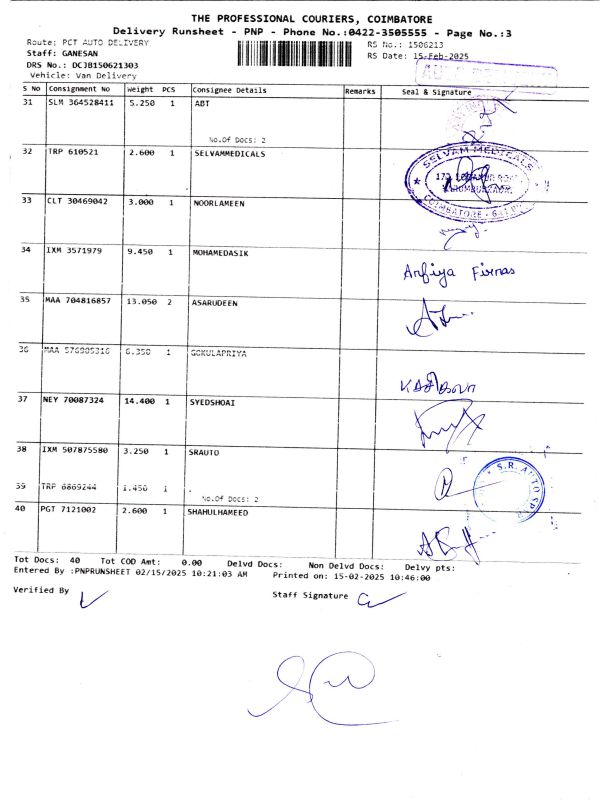 THE PROFESSIONAL COURIERS, COIMBATORE
Delivery Runsheet - PNP - Phone No.:0422-3505555 - Page No.:3
Route: PCT AUTO DELIVERY RS No.: 1506213
Staff: GANESAN RS Date: 15-Feb-2025
DRS No.: DCJB150621303
Vehicle: Van Delivery
S No Consignment No Weight PCS Consignee Details Remarks Seal & Signature
31 SLM 364528411 5.250 1 ABT
No.Of Docs: 2
32 TRP 610521 2.600 1 SELVAMMEDICALS
SELVAM MEDICALS
COIMBATORE
33 CLT 30469042 3.000 1 NOORLAMEEN
34 IXM 3571979 9.450 1 MOHAMEDASIK
Anfiya Firnas
35 MAA 704816857 13.050 2 ASARUDEEN
36 MAA 576985316 6.350 1 GOKULAPRIYA
37 NEY 70087324 14.400 1 SYEDSHOAI
38 IXM 507875580 3.250 1 SRAUTO
S.R. AUTO
39 TRP 6869244 1.450 1 .
No.Of Docs: 2
40 PGT 7121002 2.600 1 SHAHULHAMEED
Tot Docs: 40 Tot COD Amt: 0.00 Delvd Docs: Non Delvd Docs: Delvy pts:
Entered By :PNPRUNSHEET 02/15/2025 10:21:03 AM Printed on: 15-02-2025 10:46:00
Verified By Staff Signature